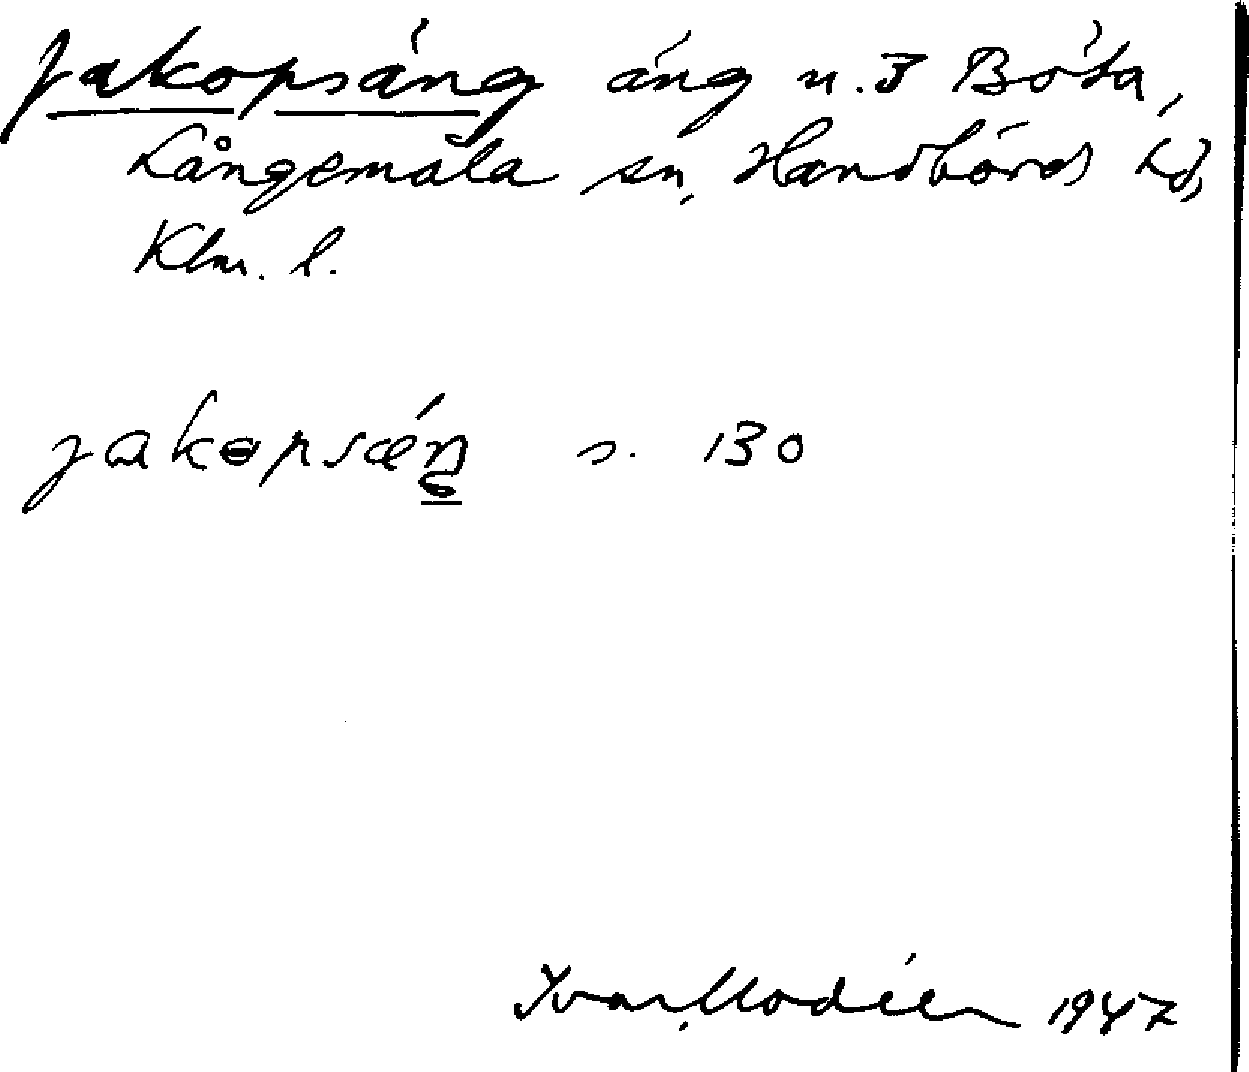 Jakopsäng äng n. 3 Böta,
Långemåla sn, Handbörds hd,
Klm. l.
jakɵpsæ´ŋ s. 130
Ivar Modéer 1947